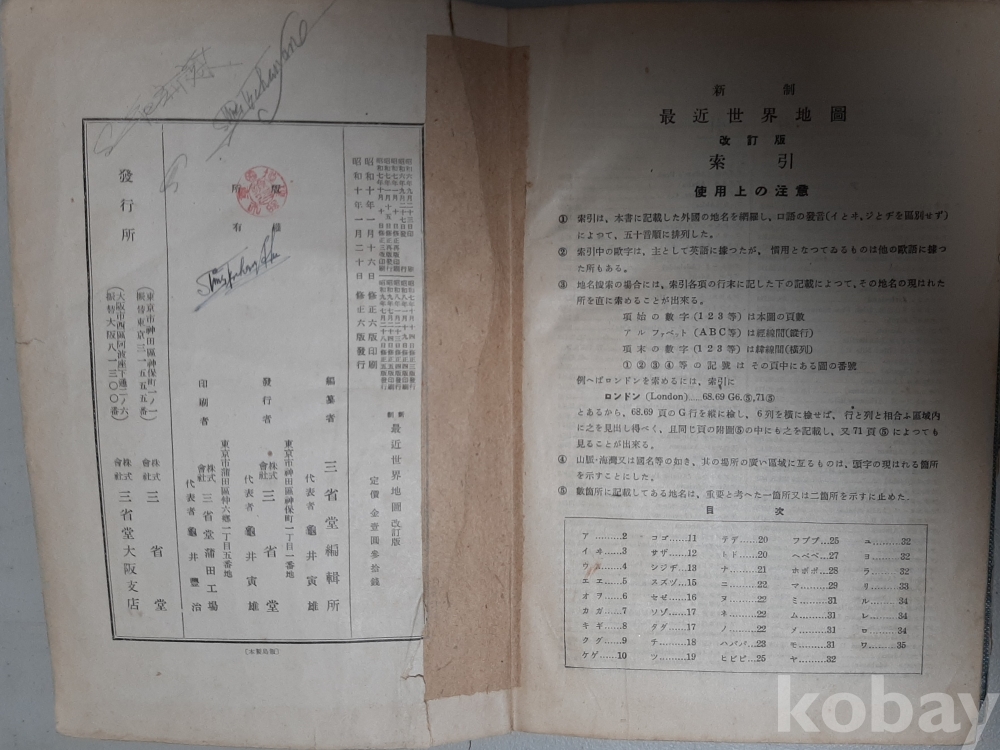 發行所
東京市神田區神保町一ノ一
振替東京三一五五五番
株式會社 三省堂
大阪市西區阿波座下通二ノ六
振替大阪八一三〇〇番
株式會社 三省堂大阪支店
版權所有
昭和十年一月十六日 修正六版印刷
昭和十年一月二十日 修正六版發行
新制 最近世界地圖 改訂版
定價 金壹圓參拾錢
編纂者 三省堂編輯所
東京市神田區神保町一丁目一番地
發行者 株式會社 三省堂
代表者 龜井寅雄
東京市蒲田區仲六鄕一丁目五番地
印刷者 株式會社 三省堂蒲田工場
代表者 龜井豐治
新制
最近世界地圖
改訂版
索引
使用上の注意
① 索引は、本書に記載した外國の地名を網羅し、口語の發音(イとヰ、ジとヂを區別せず)
によつて、五十音順に排列した。
② 索引中の歐字は、主として英語に據つたが、慣用となつてゐるものは他の歐語に據つ
た所もある。
③ 地名搜索の場合には、索引各項の行末に記した下の記載によつて、その地名の現はれた
所を直に索めることが出來る。
項始の數字(1 2 3 等)は本圖の頁數
アルファベット(A B C 等)は經線間(縱行)
項末の數字(1 2 3 等)は緯線間(橫列)
①②③④等の記號はその頁中にある圖の番號
例へばロンドンを索めるには、索引に
ロンドン (London)..... 68.69 G6.⑤,71⑤
とあるから、68.69 頁のG行を縱に檢し、6列を橫に檢せば、行と列と相合ふ區域內
に之を見出し得べく、且同じ頁の附圖⑤の中にも之を記載し、又71頁⑤によつても
見ることが出來る。
④ 山脈・海灣又は國名等の如き、其の場所の廣い區域に亙るものは、頭字の現はれる箇所
を示すことにした。
⑤ 數箇所に記載してある地名は、重要と考へた一箇所又は二箇所を示すに止めた.
目次
ア.........2 コゴ......11 テデ......20 フブプ...25 ユ.........32
イヰ......3 サザ......12 トド......20 ヘベペ...27 ヨ.........32
ウ.........4 シジヂ...13 ナ.........21 ホボポ...28 ラ.........32
エヱ......5 スズヅ...15 ニ.........22 マ.........29 リ.........33
オヲ......6 セゼ......16 ヌ.........22 ミ.........31 ル.........34
カガ......7 ソゾ......17 ネ.........22 ム.........31 レ.........34
キギ......8 タダ......17 ノ.........22 メ.........31 ロ.........34
クグ......9 チ.........18 ハバパ...23 モ.........31 ワ.........35
ケゲ......10 ツ.........19 ヒビピ...25 ヤ.........32
kobay